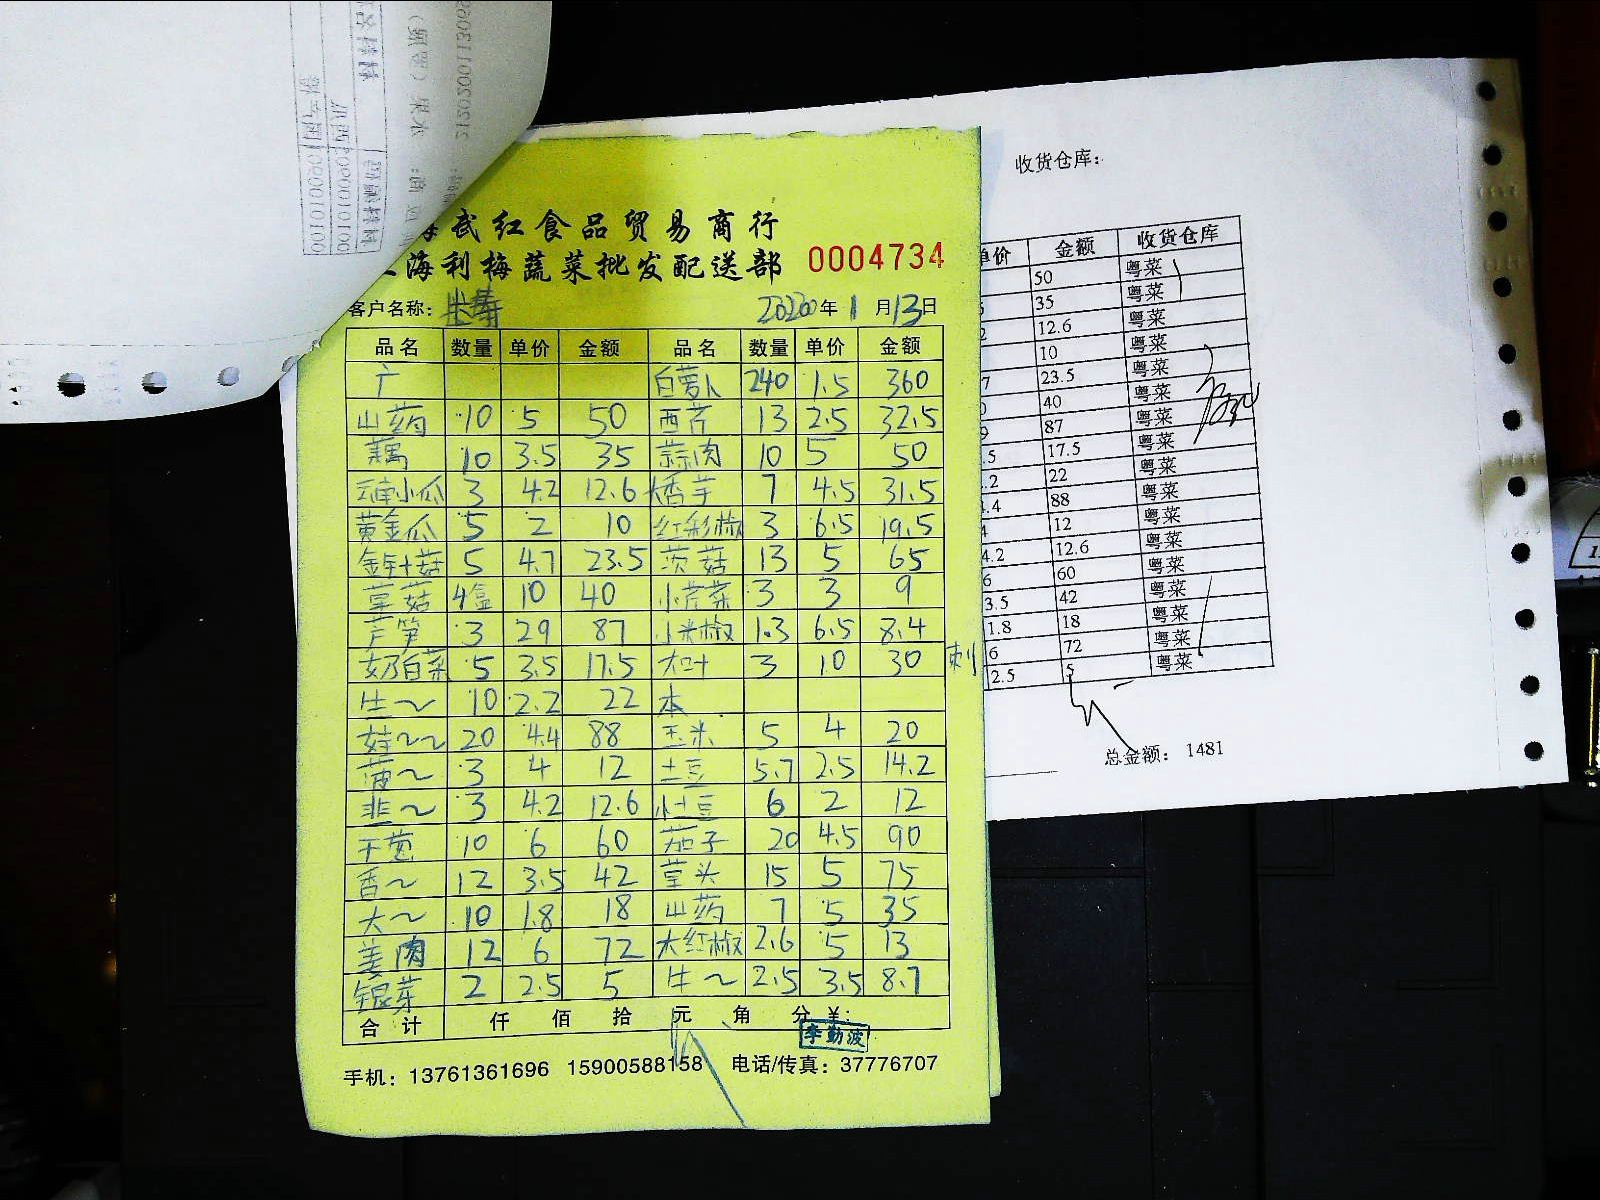 武红食品贸易商行
海利梅蔬菜批发配送部 0004734
客户名称: 2020年 1 月 13 日
品名 数量 单价 金额 品名 数量 单价 金额
广 白萝卜 240 1.5 360
山药 10 5 50 西芹 13 2.5 32.5
藕 10 3.5 35 蒜肉 10 5 50
云南小瓜 3 4.2 12.6 香芋 7 4.5 31.5
黄金瓜 5 2 10 红彩椒 3 6.5 19.5
金针菇 5 4.7 23.5 茨菇 13 5 65
草菇 4盒 10 40 小荒菜 3 3 9
芦笋 3 29 87 小米椒 1.3 6.5 8.4
奶白菜 5 3.5 17.5 大叶 3 10 30 刺
生~ 10 2.2 22 本
娃~~ 20 4.4 88 玉米 5 4 20
菠~ 3 4 12 土豆 5.7 2.5 14.2
韭~ 3 4.2 12.6 小土豆 6 2 12
干葱 10 6 60 茄子 20 4.5 90
香~ 12 3.5 42 草头 15 5 75
大~ 10 1.8 18 山药 7 5 35
姜肉 12 6 72 大红椒 2.6 5 13
银芽 2 2.5 5 生~ 2.5 3.5 8.7
合计 仟 佰 拾 元 角 分 ¥:
李勤波
手机: 13761361696 15900588158 电话/传真: 37776707
收货仓库:
单价 金额 收货仓库
50 粤菜
35 粤菜
2 12.6 粤菜
10 粤菜
7 23.5 粤菜
0 40 粤菜
9 87 粤菜
.5 17.5 粤菜
.2 22 粤菜
4.4 88 粤菜
4 12 粤菜
4.2 12.6 粤菜
6 60 粤菜
3.5 42 粤菜
1.8 18 粤菜
6 72 粤菜
2.5 5 粤菜
总金额: 1481